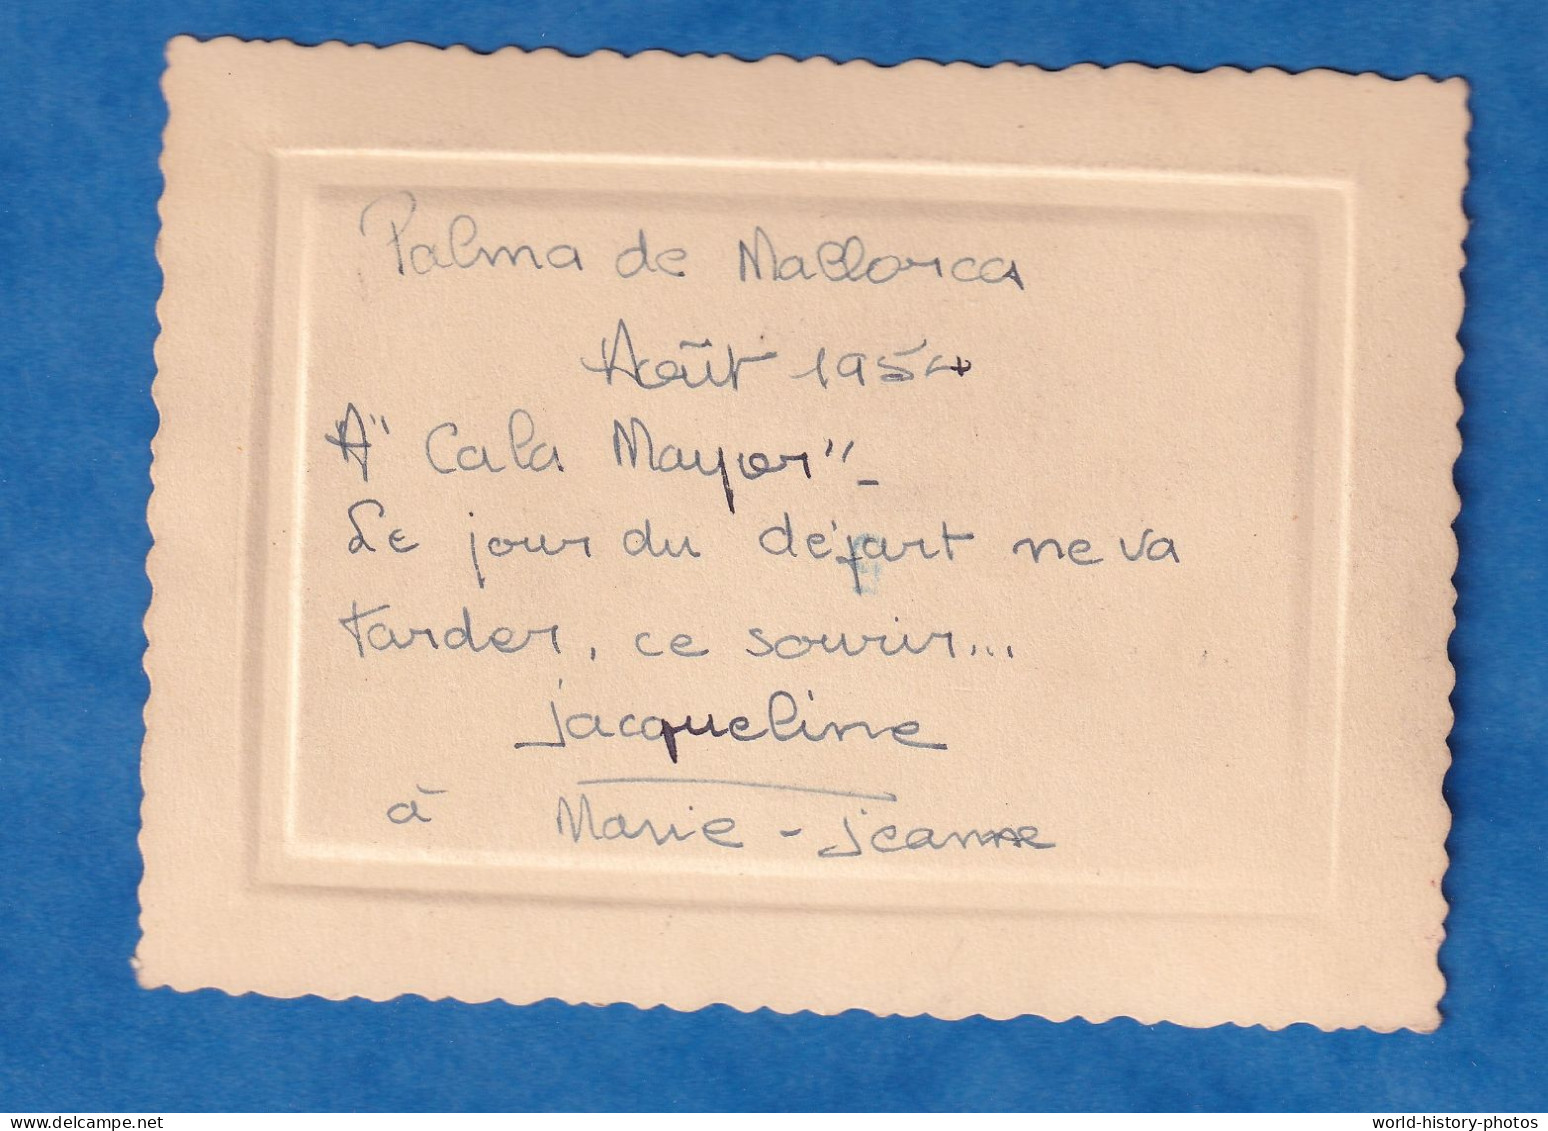 Palma de Mallorca
Août 1954
A "Cala Mayor" -
Le jour du départ ne va
tarder, ce sourir...
Jacqueline
à Marie - Jeanne
world-history-photos